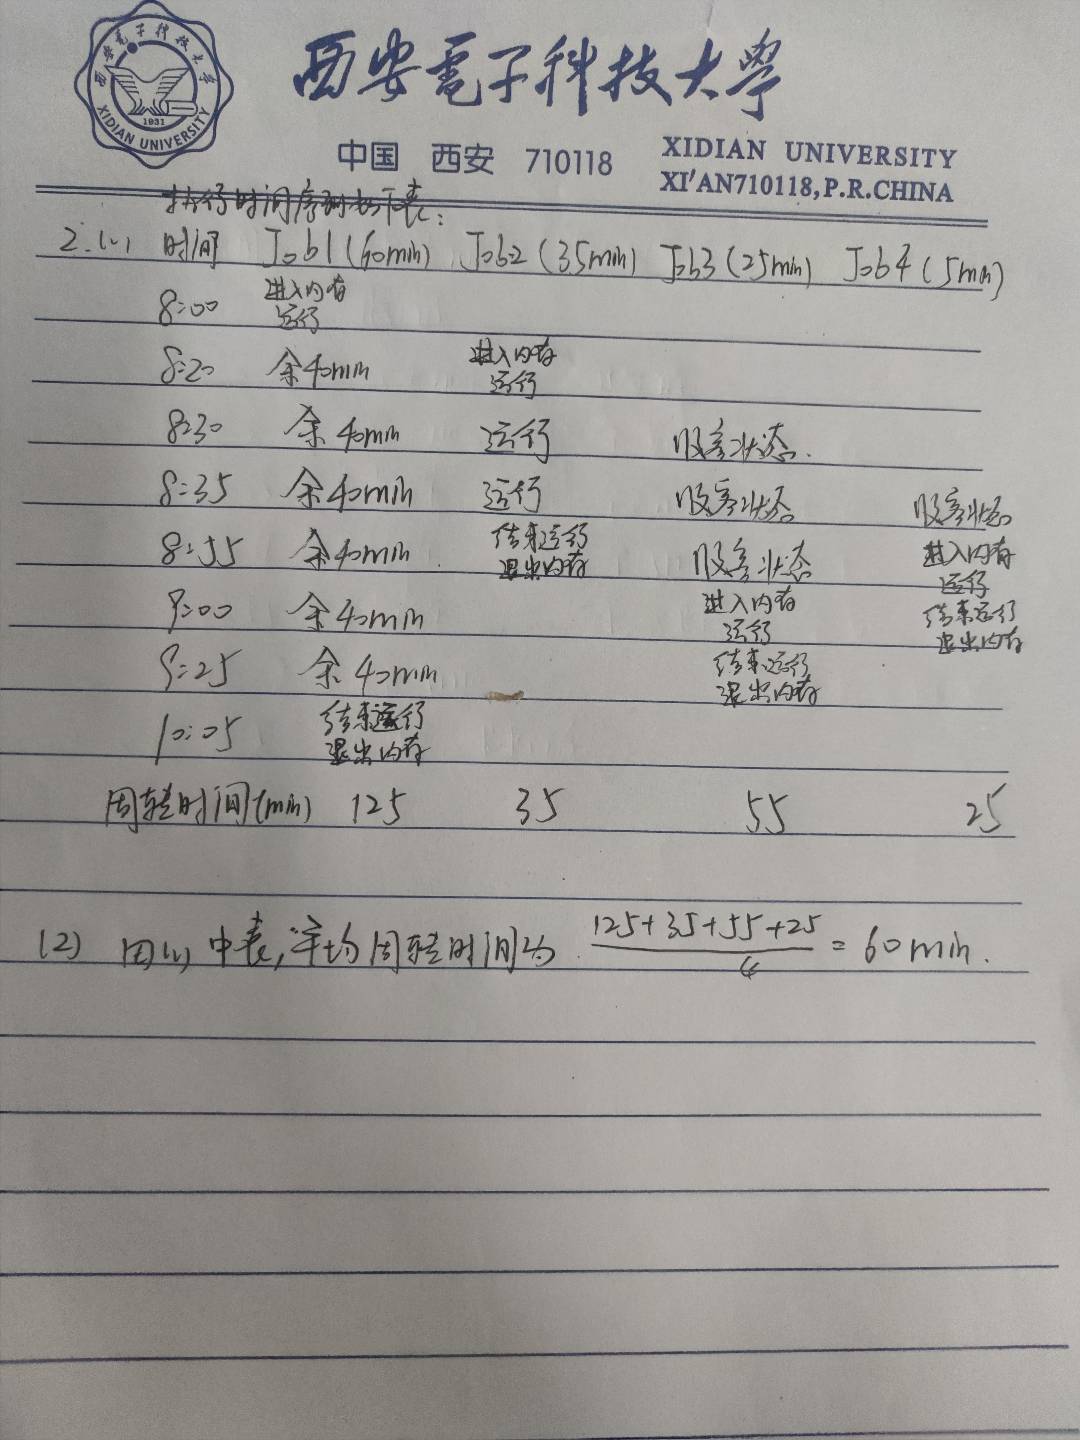 西安電子科技大學
1931
XIDIAN UNIVERSITY
西安電子科技大學
中国 西安 710118
XIDIAN UNIVERSITY
XI'AN710118,P.R.CHINA
执行时间序列如下表:
2.(1) 时间 Job1(60min) Job2(35min) Job3(25min) Job4(5min)
8:00 进入内存 运行
8:20 余40min 进入内存 运行
8:30 余40min 运行 收容状态.
8:35 余40min 运行 收容状态 收容状态
8:55 余40min 结束运行 退出内存 收容状态 进入内存 运行
9:00 余40min 进入内存 运行 结束运行 退出内存
9:25 余40min 结束运行 退出内存
10:05 结束运行 退出内存
周转时间(min) 125 35 55 25
(2) 由(1)中表,平均周转时间为 125+35+55+25/4 = 60min.